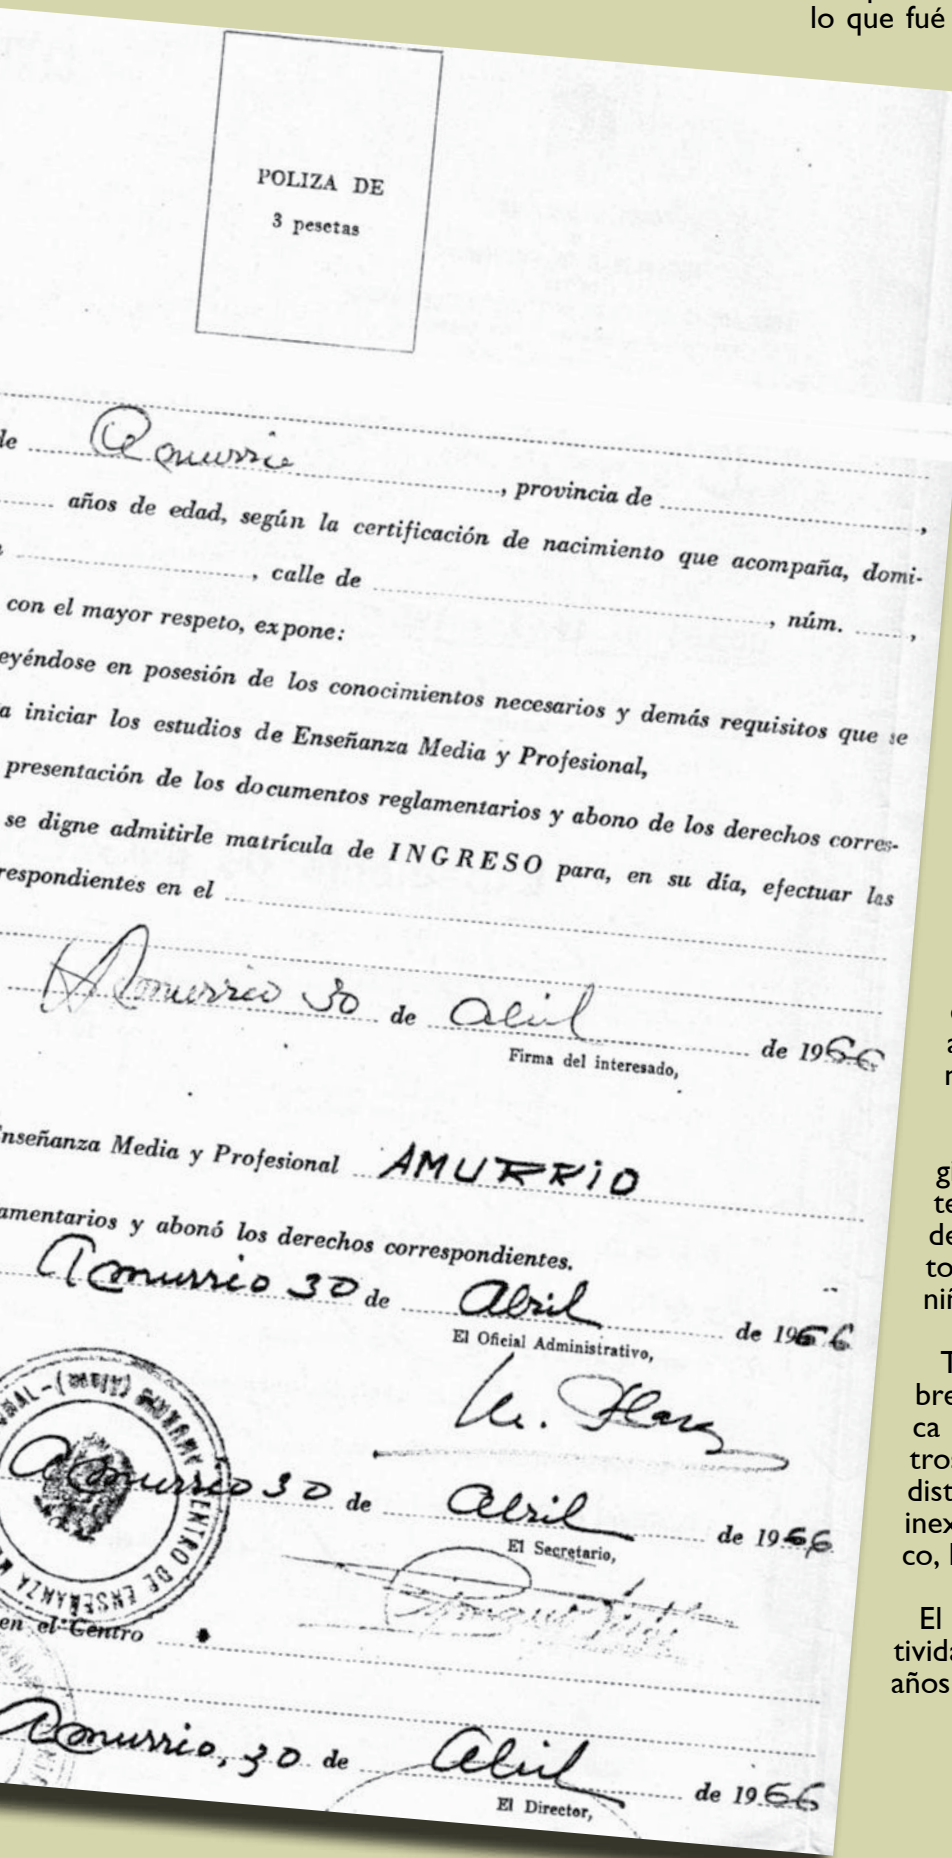 lo que fué
POLIZA DE
3 pesetas
de Amurrio, provincia de ,
años de edad, según la certificación de nacimiento que acompaña, domi-
, calle de , núm. ,
con el mayor respeto, expone:
eyéndose en posesión de los conocimientos necesarios y demás requisitos que se
a iniciar los estudios de Enseñanza Media y Profesional,
presentación de los documentos reglamentarios y abono de los derechos corres-
se digne admitirle matrícula de INGRESO para, en su día, efectuar las
respondientes en el
Amurrio 30 de Abril de 1966
Firma del interesado,
nseñanza Media y Profesional AMURRIO
amentarios y abonó los derechos correspondientes.
Amurrio 30 de Abril de 1966
El Oficial Administrativo,
Amurrio 30 de Abril de 1966
El Secretario,
CENTRO DE ENSEÑANZA
en el Centro
Amurrio, 30 de Abril de 1966
El Director,
gi
te
de
to
niñ
T
bre
ca
tros
dist
inex
co, l
El
tivida
años